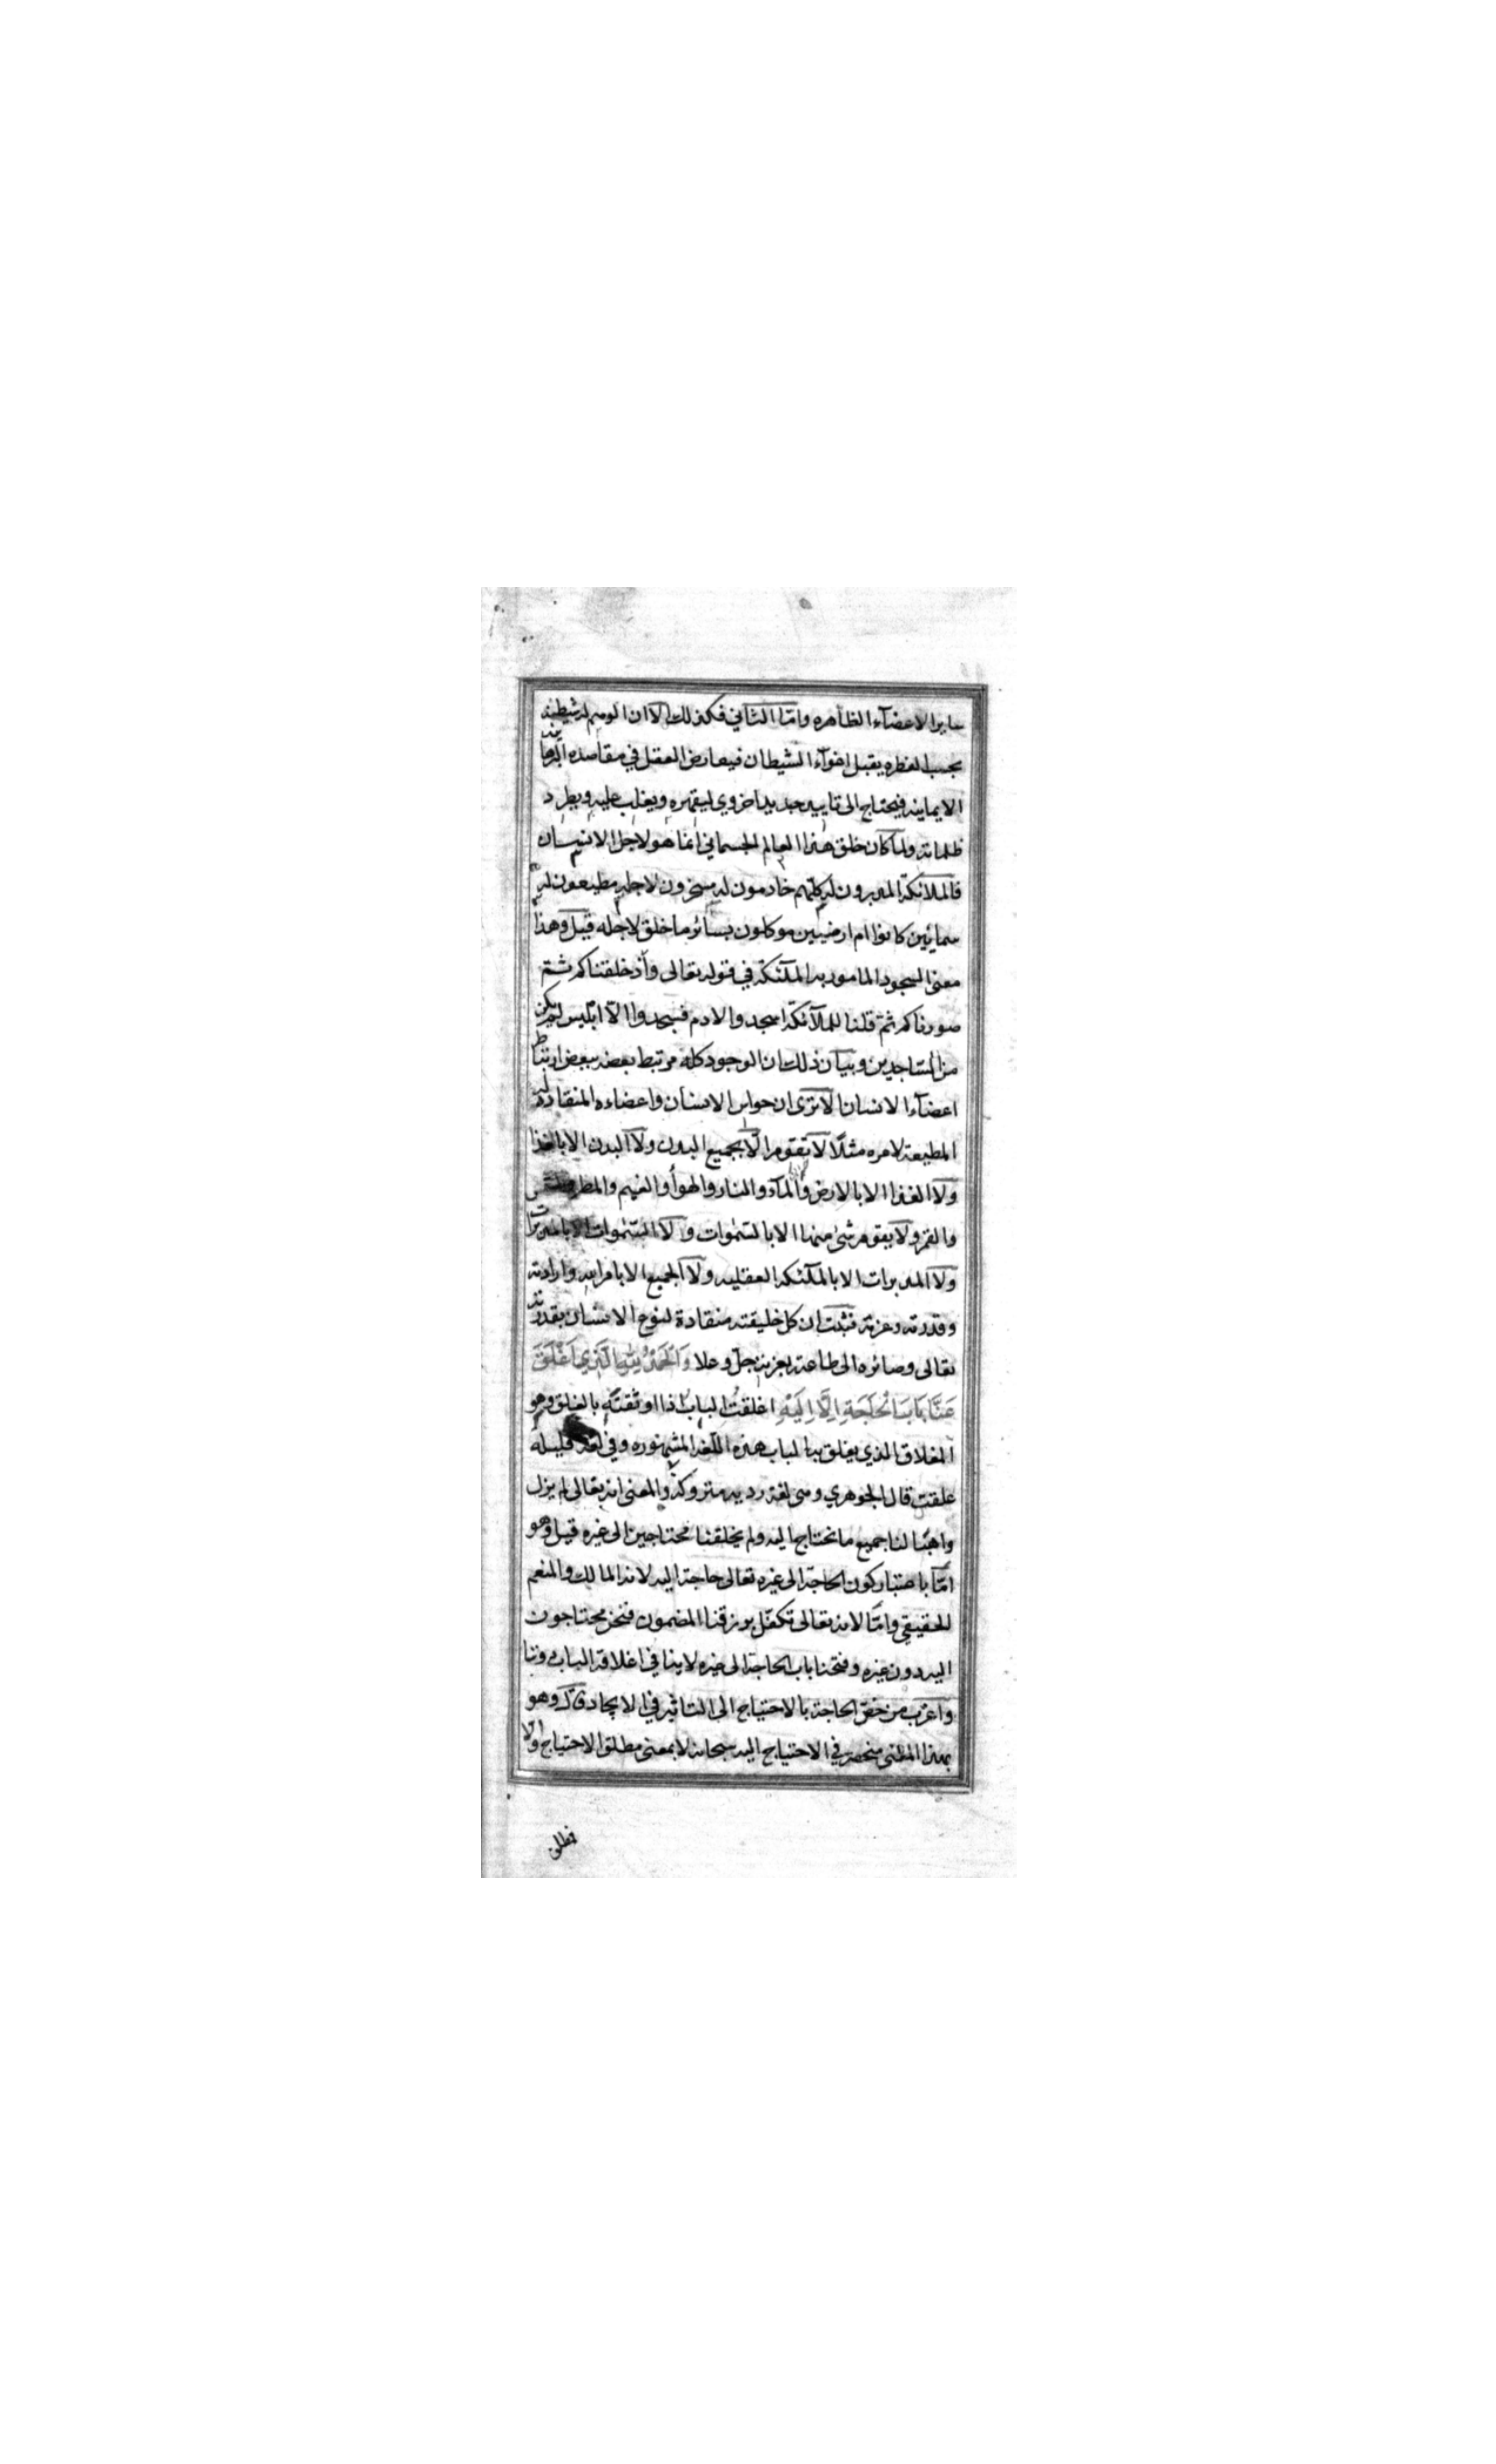 ساير الاعضآء الظاهره وامّا الثاني فكذلك الا ان الوهم لشيطنته
بحسب الفطره يقبل اغوآء الشيطان فيعارض العقل في مقاصده البرهانية
الايمانيه فيحتاج الى تاييد جديد اخروي ليقهره ويغلب عليه ويطرد
ظلماته ولما كان خلق هذا العالم الجسماني انما هو لاجل الانسان
فالملائكة المدبرون له كلهم خادمون له مسخرون لاجله مطيعون له
سمائيين كانوا ام ارضيين موكلون بسائر ما خلق لاجله قيل وهذا
معنى السجود المامور به الملئكة في قوله تعالى واذ خلقناكم ثم
صورناكم ثم قلنا للملآئكة اسجدوا لادم فسجدوا الّا ابليس لم يكن
من الساجدين وبيان ذلك ان الوجود كله مرتبط بعضه ببعض ارتباط
اعضآء الانسان الا ترى ان حواس الانسان واعضاءه المنقادة له
المطيعة لامره مثلًا لا تقوم الّا بجميع البدن ولا البدن الا بالغذا
ولا الغذا الا بالارض والمآء والنار والهوأ والغيم والمطر والشمس
والقمر ولا يقوم شئ منها الا بالسّموات ولا السّموات الا بالمدبرات
ولا المدبرات الا بالملئكه العقليه ولا الجميع الا بامر الله وارادته
وقدرته وعزته فثبت ان كل خليقته منقادة لنوع الانسان بقدرته
تعالى وصائره الى طاعته بعزته جلّ وعلا وَالْحَمْدُ لِلّٰهِ الَّذِي اَغْلَقَ
عَنَّا بَابَ الْحَاجَةِ اِلَّا اِلَيْهِ اغلقتُ الباب اذا اوثقته بالغلق وهو
المغلاق الذي يغلق به الباب هذه اللغة المشهوره وفي لغة قليلة
غلقت قال الجوهري وهي لغة رديه متروكة والمعنى انه تعالى لم يزل
واهبًا لنا جميع ما نحتاج اليه ولم يخلقنا محتاجين الى غيره قيل وهو
امّا باعتبار كون الحاجة الى غيره تعالى حاجة اليه لانه المالك والمنعم
الحقيقي وامّا لانه تعالى تكفّل برزقنا المضمون فنحن محتاجون
اليه دون غيره وفتحنا باب الحاجة الى غيره لا ينافي اغلاقه الباب
واغرب من خصّ الحاجة بالاحتياج الى التاثير في الايجاد وهو
بهذا المعنى منحصر في الاحتياج اليه سبحانه لا بمعنى مطلق الاحتياج والا